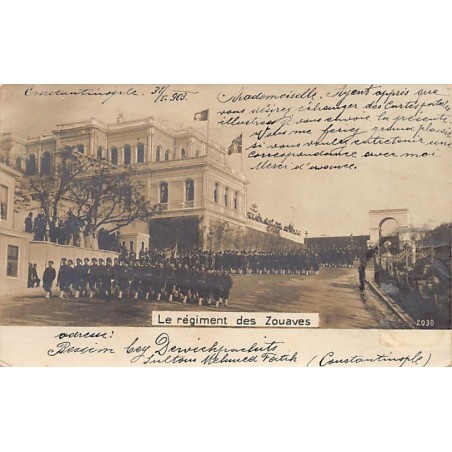 Constantinople. 31/5. 903.
Mademoiselle. Ayant appris que
vous désirez échanger des Cartes postales
illustrées je vous envoie la présente
Vous me ferez grand plaisir
si vous voulez entretenir une
correspondance avec moi
Merci d'avance.
Le régiment des Zouaves
2030
adresse:
Bessim bey Dervichpachits
Sultan Mehmed Fatih (Constantinople)